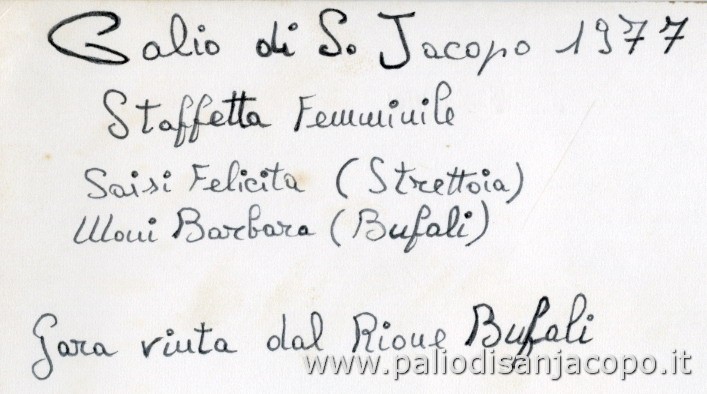 Palio di S. Jacopo 1977
Staffetta Femminile
Saisi Felicita (Strettoia)
Moni Barbara (Bufali)
Gara vinta dal Rione Bufali
www.paliodisanjacopo.it